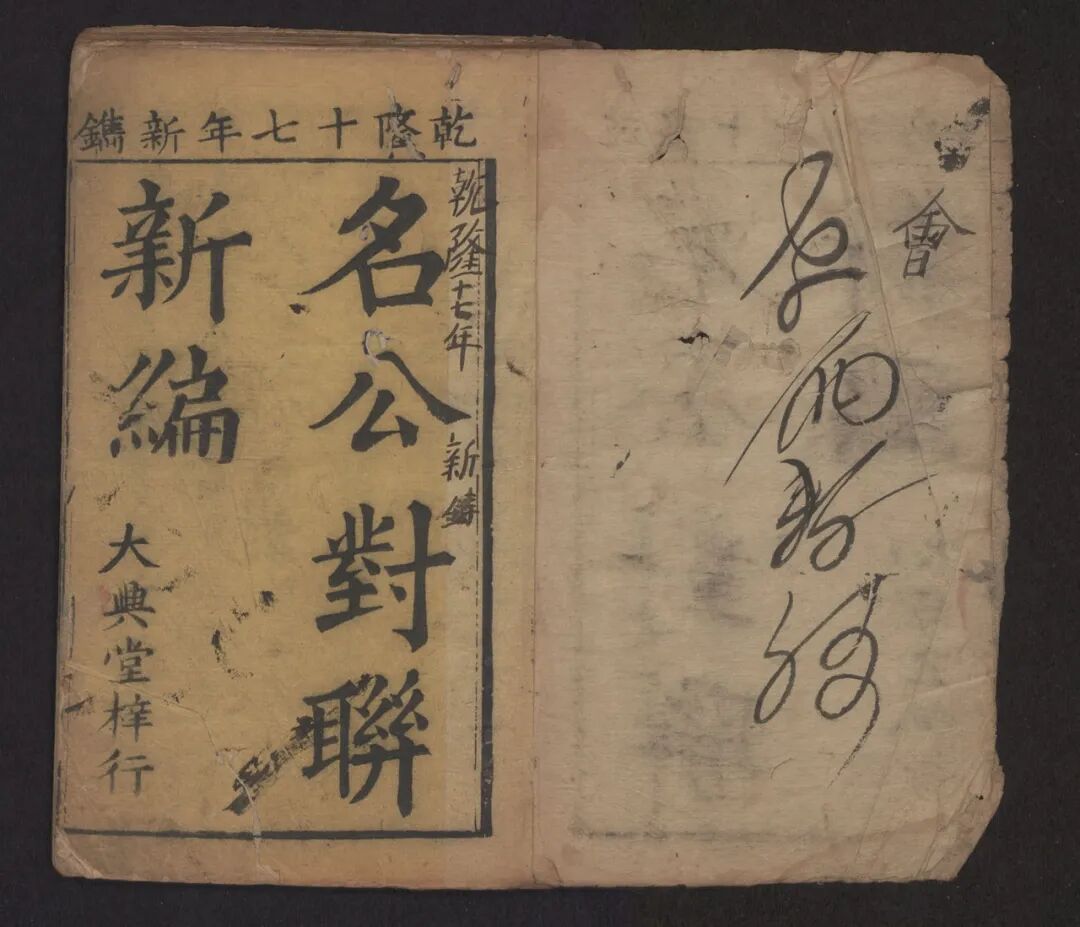 會
乾隆十七年新鐫
乾隆十七年
新鑄
名公對聯
新編
大典堂梓行